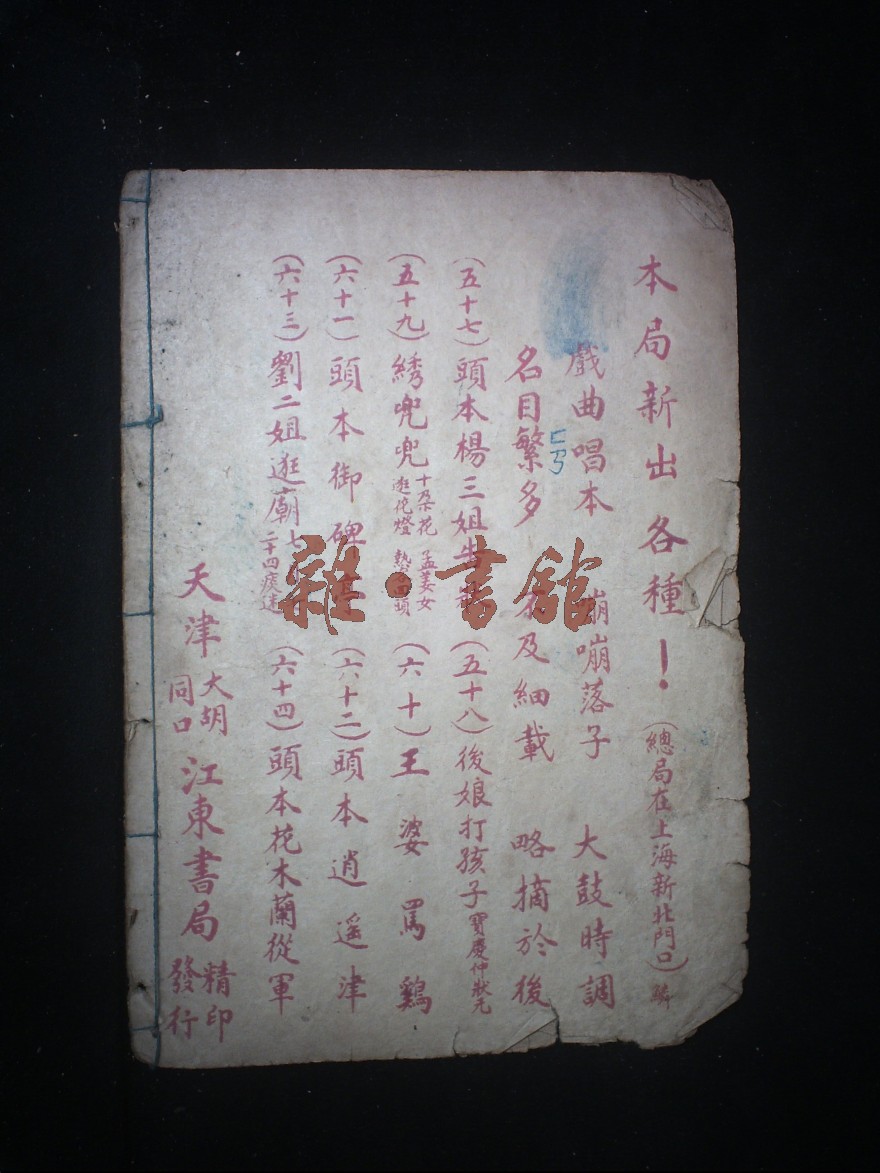 本局新出各種！（總局在上海新北門口）
戲曲唱本 嘣嘣落子 大鼓時調
名目繁多 不及細載 略摘於後
（五十七）頭本楊三姐告狀（五十八）後娘打孩子 寶慶仲狀元
（五十九）綉兜兜 十朵花 孟姜女 逛花燈（六十）王婆罵鷄
（六十一）頭本御碑亭（六十二）頭本逍遥津
（六十三）劉二姐逛廟 二十四（六十四）頭本花木蘭從軍
天津 大胡同口 江東書局 精印發行
雜·書舘